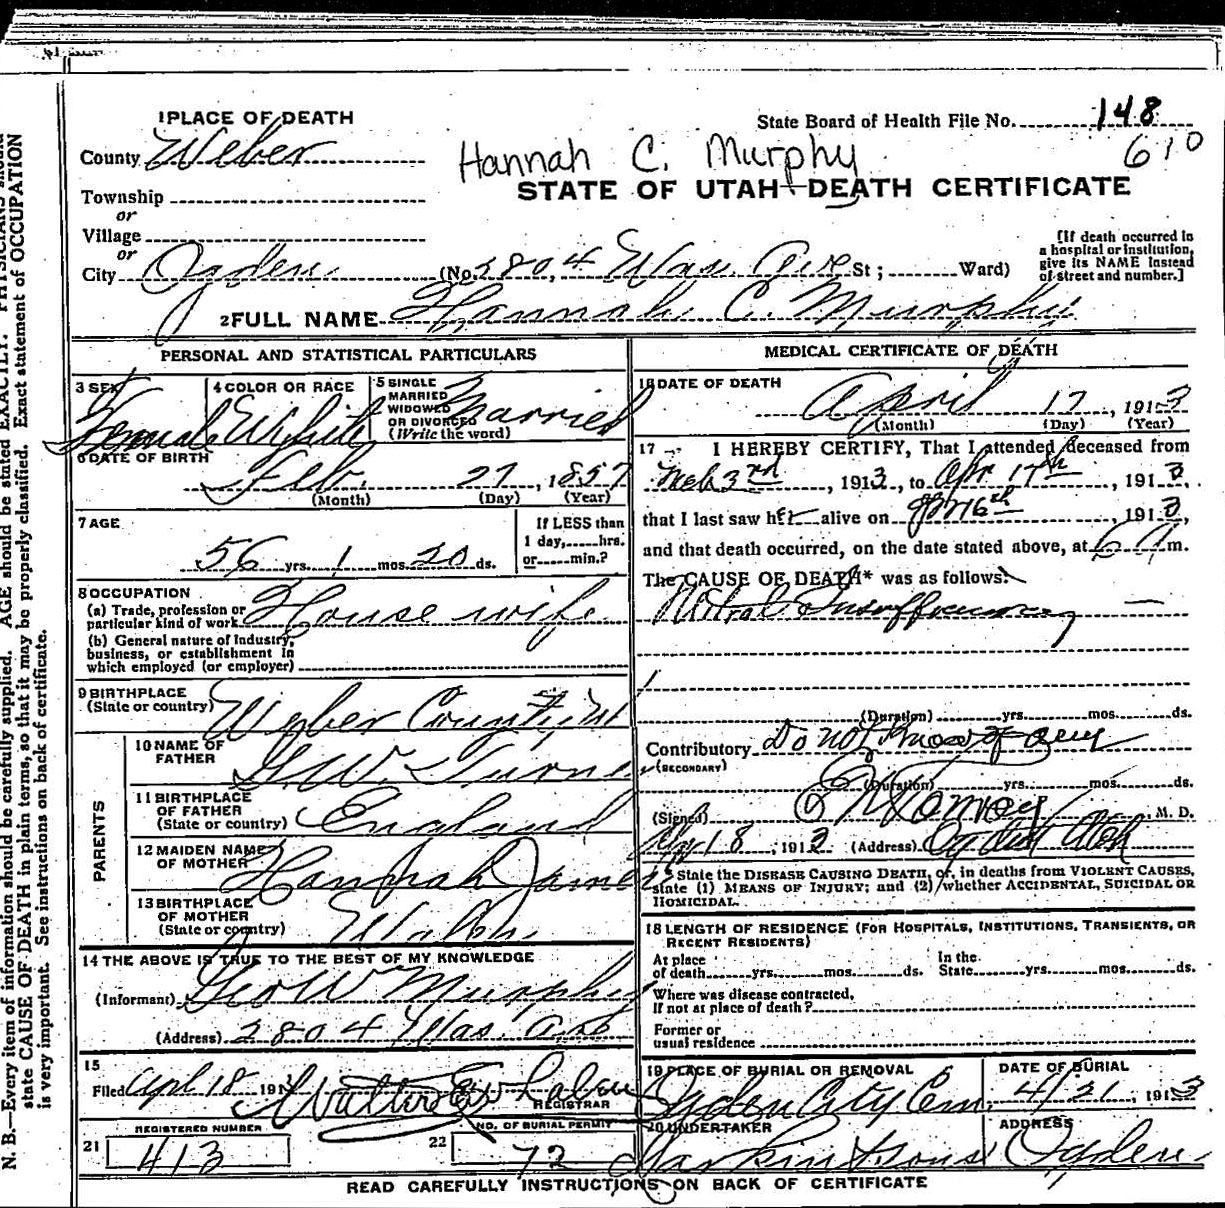 1 PLACE OF DEATH
State Board of Health File No. 148
610
County Weber
Hannah C. Murphy
STATE OF UTAH DEATH CERTIFICATE
Township
or
Village
or
City Ogden (No. 2804 Was. Ave St; Ward)
[If death occurred in a hospital or institution, give its NAME instead of street and number.]
2 FULL NAME Hannah C. Murphy
PERSONAL AND STATISTICAL PARTICULARS
3 SEX Female
4 COLOR OR RACE White
5 SINGLE MARRIED WIDOWED OR DIVORCED (Write the word) Married
6 DATE OF BIRTH Feb. 27, 1857
(Month) (Day) (Year)
7 AGE
56 yrs. 1 mos. 20 ds.
If LESS than 1 day, hrs. or min.?
8 OCCUPATION
(a) Trade, profession or particular kind of work House wife
(b) General nature of Industry, business, or establishment in which employed (or employer)
9 BIRTHPLACE (State or country) Weber County, Ut
PARENTS
10 NAME OF FATHER G.W. Turne
11 BIRTHPLACE OF FATHER (State or country) England
12 MAIDEN NAME OF MOTHER Hannah James
13 BIRTHPLACE OF MOTHER (State or country) Wales
14 THE ABOVE IS TRUE TO THE BEST OF MY KNOWLEDGE
(Informant) Geo W Murphy
(Address) 2804 Was. Ave
15
Filed Apl 18 191
REGISTRAR
REGISTERED NUMBER
21 413
NO. OF BURIAL PERMIT
22 72
MEDICAL CERTIFICATE OF DEATH
16 DATE OF DEATH
April 17, 1913
(Month) (Day) (Year)
17 I HEREBY CERTIFY, That I attended deceased from
3rd, 1913, to Apr 17th, 1913,
that I last saw her alive on 16th, 1913,
and that death occurred, on the date stated above, at 6 m.
The CAUSE OF DEATH* was as follows:
Mitral Insufficiency
(Duration) yrs. mos. ds.
Contributory Do not know of any
(SECONDARY)
(Duration) yrs. mos. ds.
(Signed) Conroy, M. D.
18, 1913 (Address) Ogden Utah
* State the DISEASE CAUSING DEATH, or, in deaths from VIOLENT CAUSES, state (1) MEANS OF INJURY; and (2) whether ACCIDENTAL, SUICIDAL OR HOMICIDAL.
18 LENGTH OF RESIDENCE (FOR HOSPITALS, INSTITUTIONS, TRANSIENTS, OR RECENT RESIDENTS)
At place of death yrs. mos. ds. In the State yrs. mos. ds.
Where was disease contracted, if not at place of death?
Former or usual residence
19 PLACE OF BURIAL OR REMOVAL
Ogden City Cem.
DATE OF BURIAL
4/21, 1913
20 UNDERTAKER
Larkin & Sons
ADDRESS
Ogden
READ CAREFULLY INSTRUCTIONS ON BACK OF CERTIFICATE
N. B.—Every item of information should be carefully supplied. AGE should be stated EXACTLY. PHYSICIANS should
state CAUSE OF DEATH in plain terms, so that it may be properly classified. Exact statement of OCCUPATION
is very important. See instructions on back of certificate.